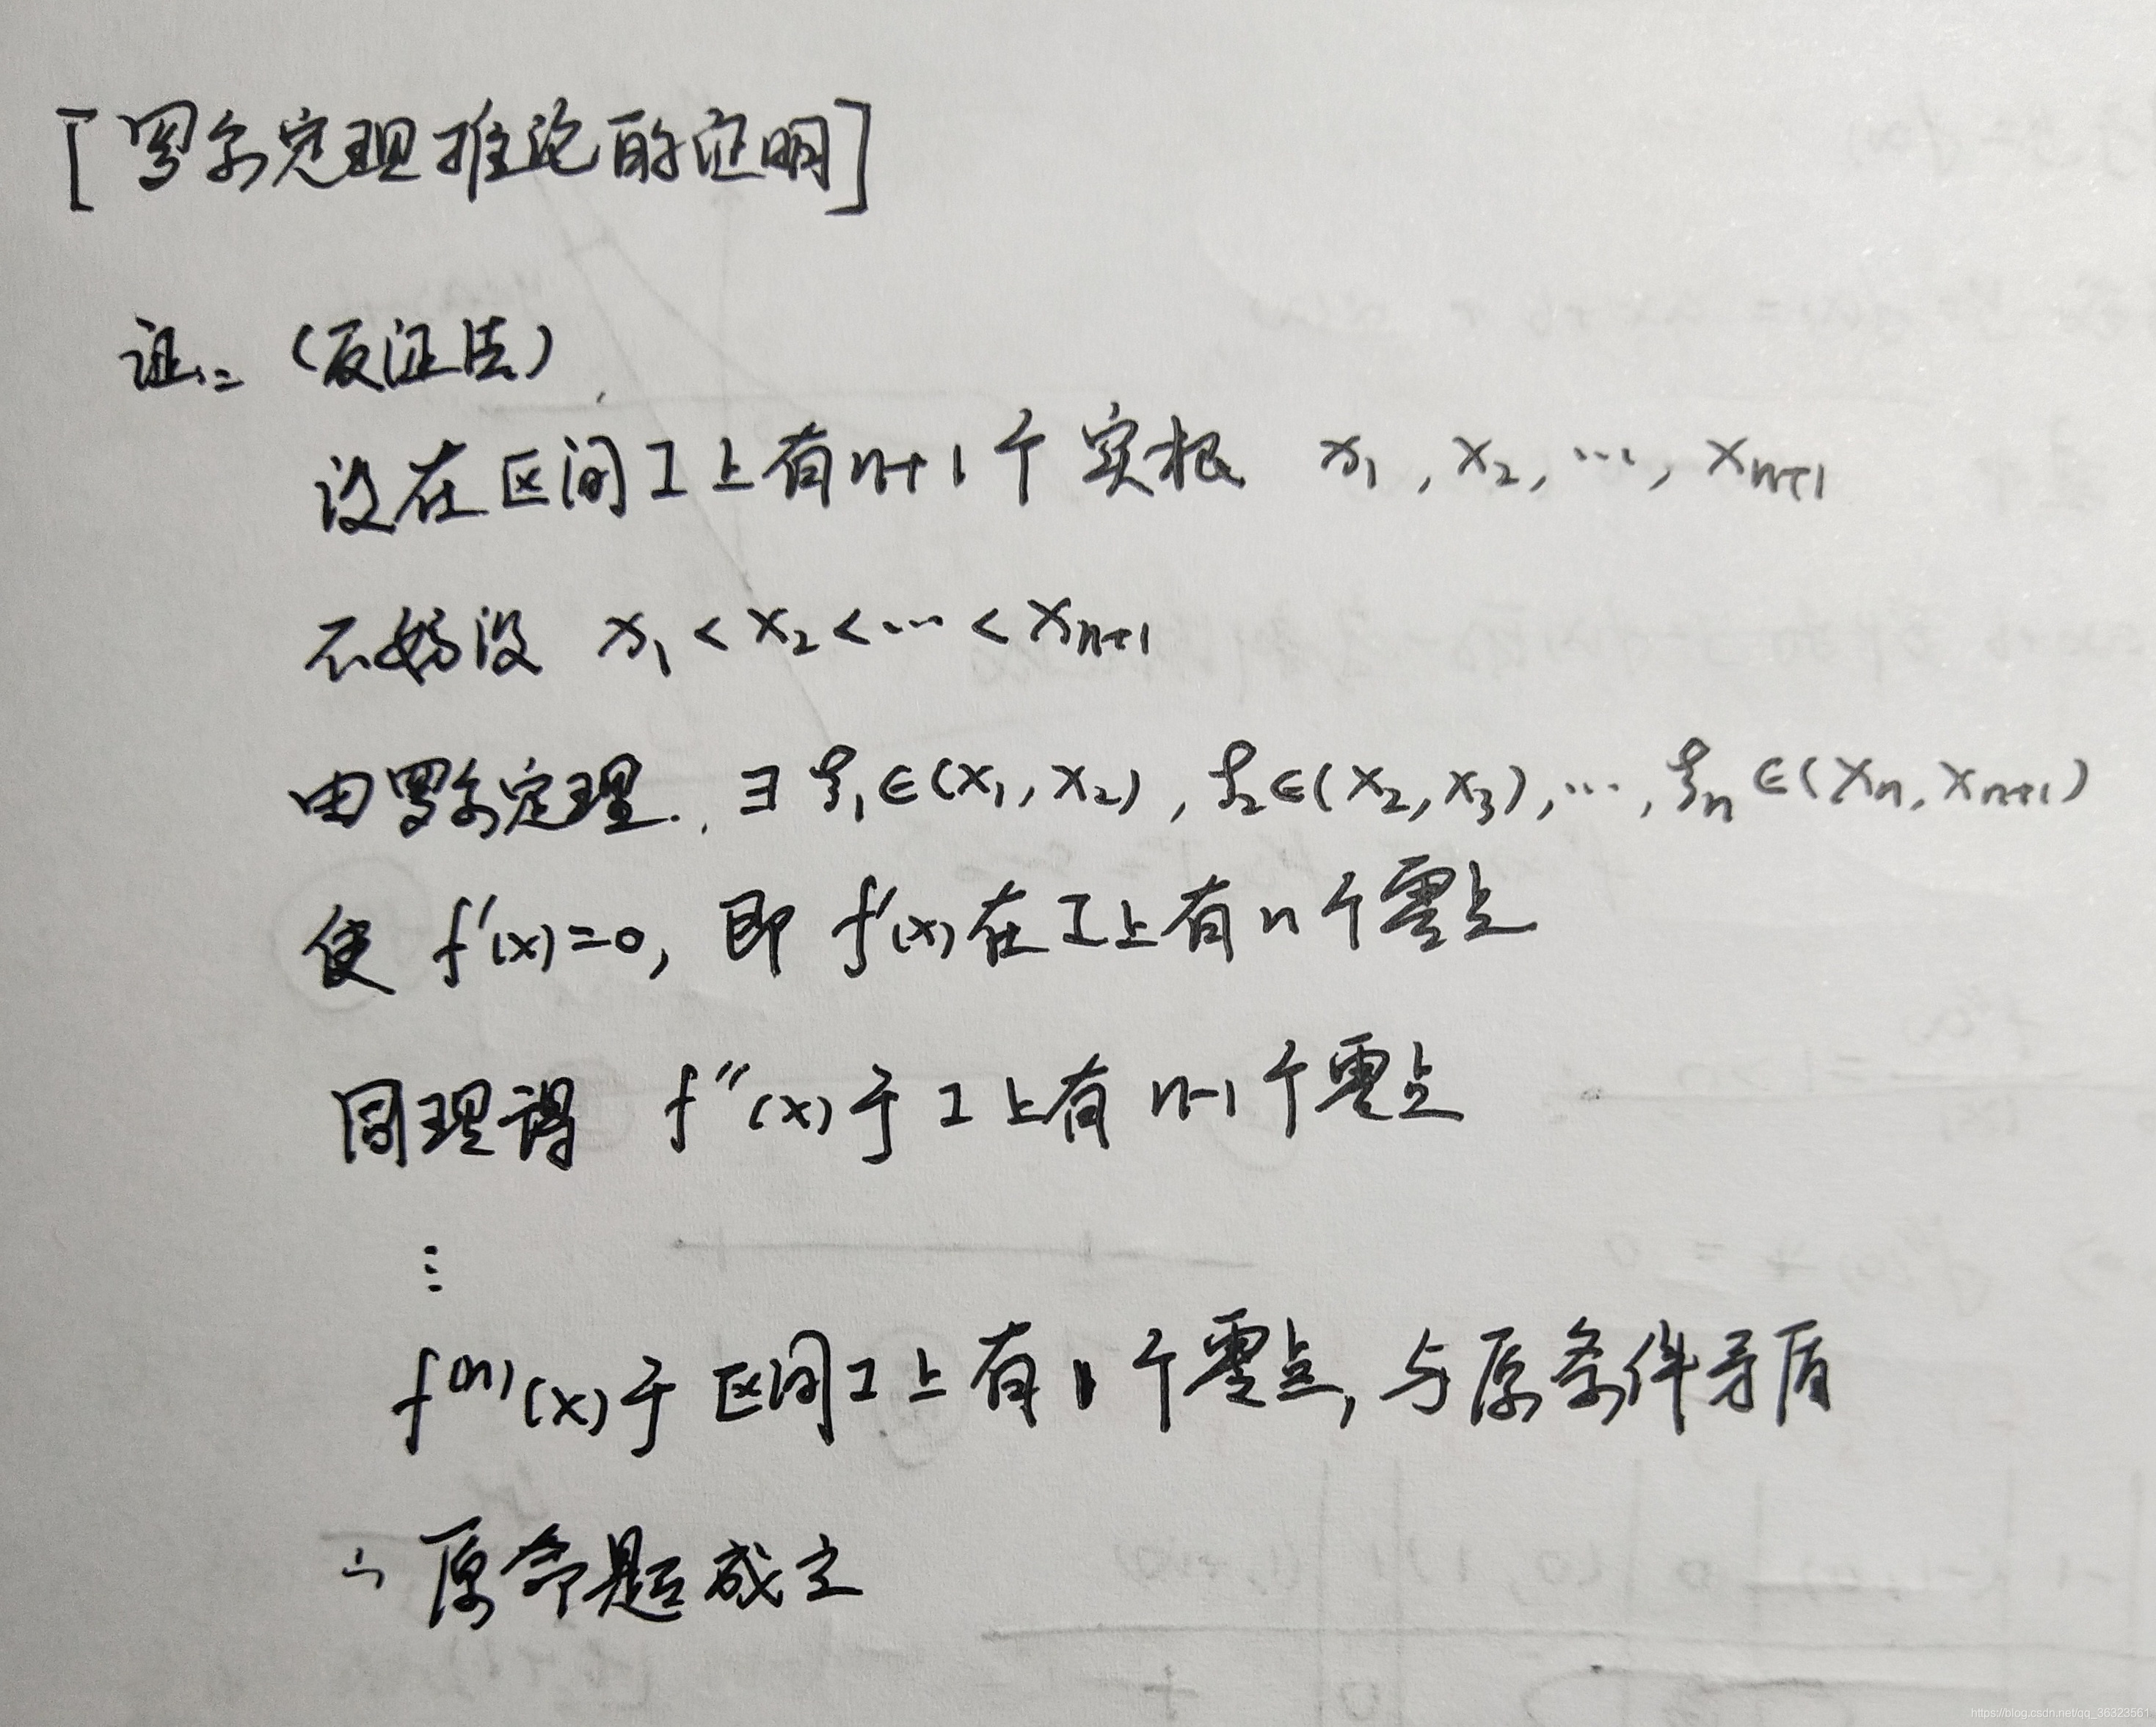 [罗尔定理推论的证明]
证: (反证法)
设在区间I上有n+1个实根 x₁, x₂, …, xₙ₊₁
不妨设 x₁ < x₂ < … < xₙ₊₁
由罗尔定理, ∃ ξ₁∈(x₁, x₂), ξ₂∈(x₂, x₃), …, ξₙ∈(xₙ, xₙ₊₁)
使 f′(x)=0, 即 f′(x)在I上有n个零点
同理得 f″(x)于I上有n-1个零点
⋮
f⁽ⁿ⁾(x)于区间I上有1个零点, 与原条件矛盾
∴ 原命题成立
https://blog.csdn.net/qq_36323561